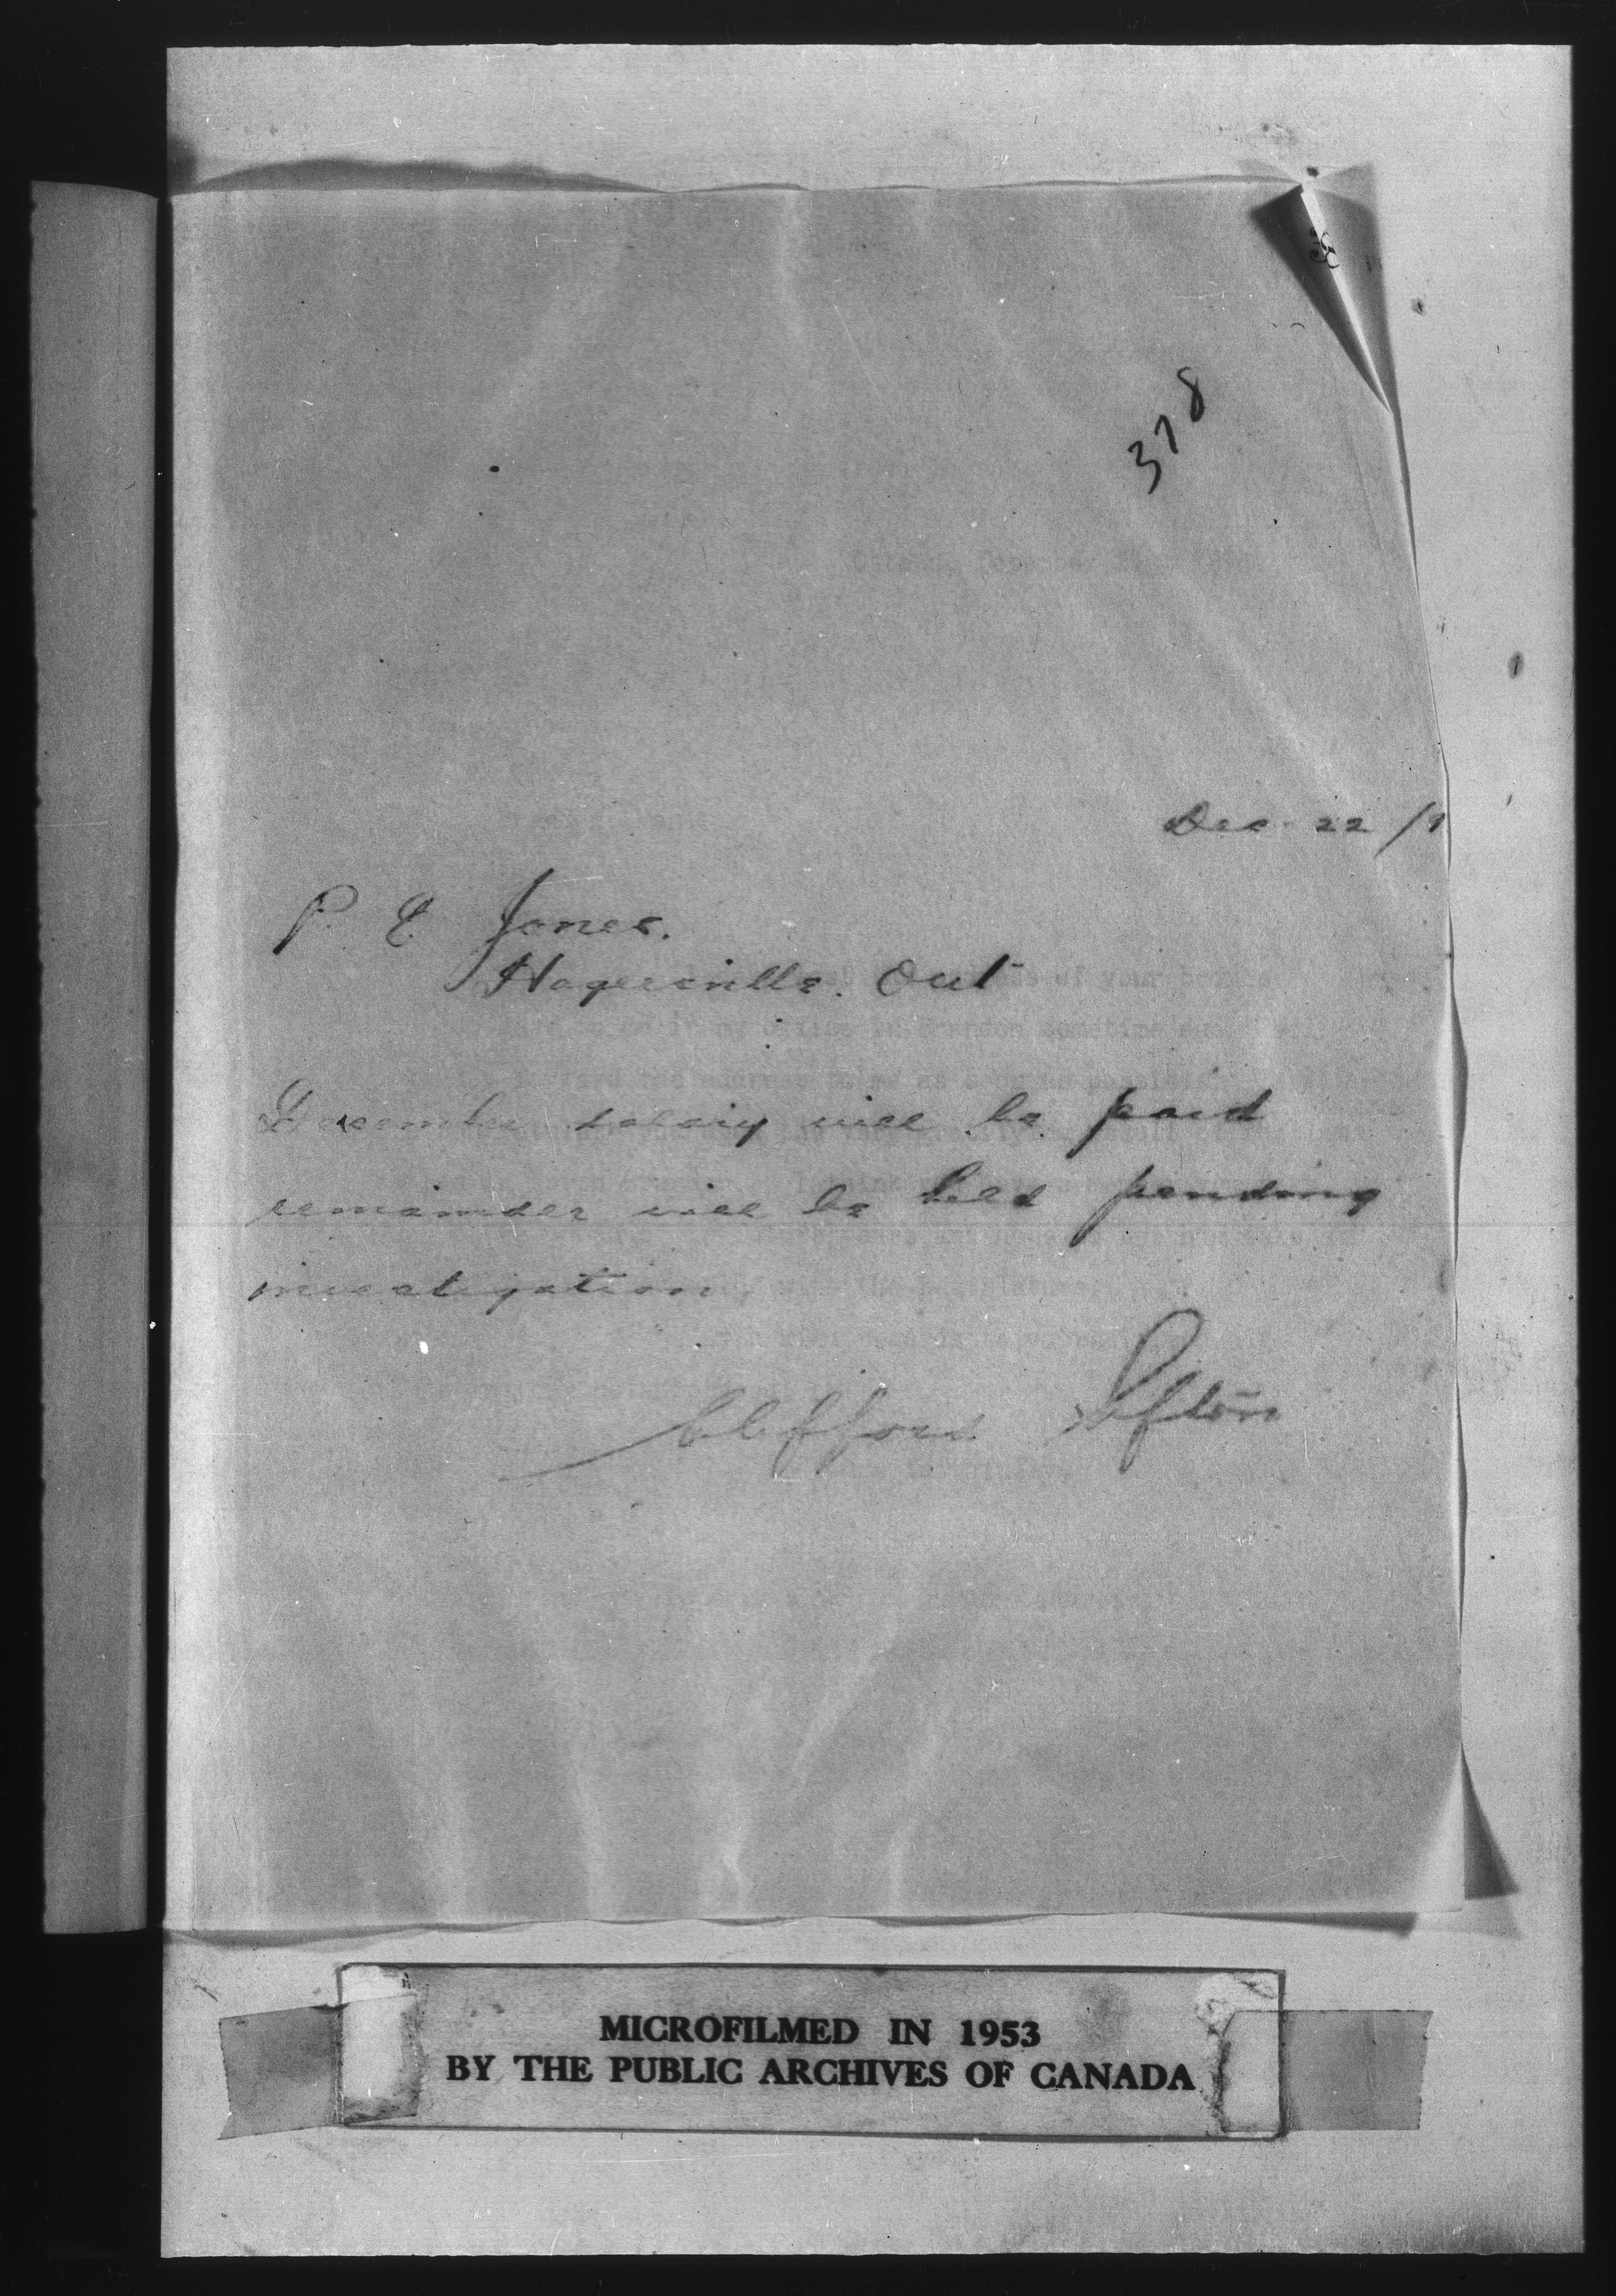 378
Dec. 22 /9
P. E. Jones.
Hagersville. Ont
December salary will be paid
remainder will be held pending
investigation
Clifford Sifton
MICROFILMED IN 1953
BY THE PUBLIC ARCHIVES OF CANADA